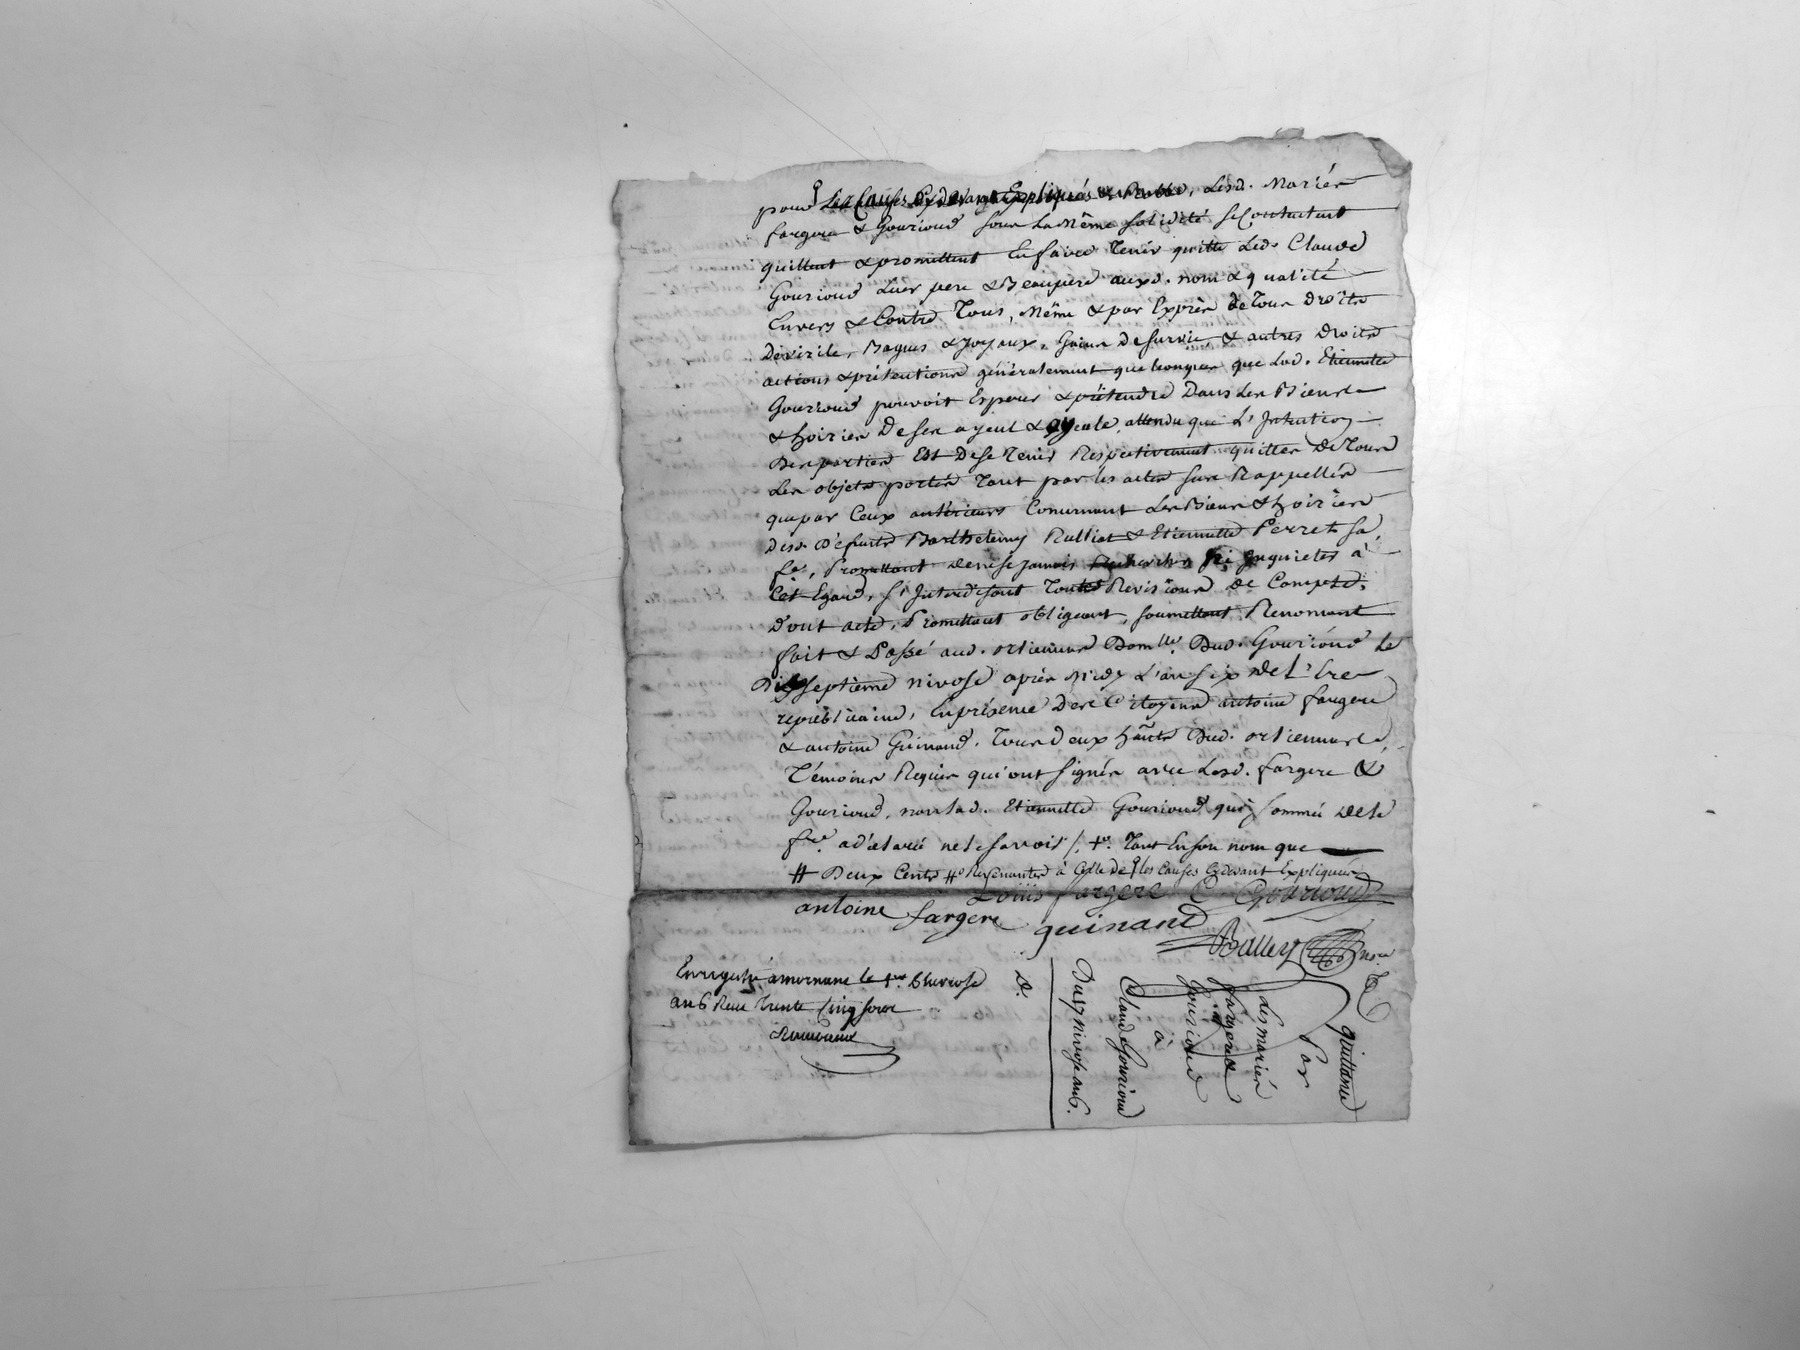 pour les Causes Cydevant Expliqués, Lesd. Mariés
fargere & Gourioud sous La Même solidité se Contentent
quittent & promettent En faire Tenir quitte Led. Claude
Gourioud Leur pere & Beaupere auxd. nom & qualité
Envers & Contre Tous, Même & par Exprès de Tous Droits
De virile, Bagues & Joyaux, Gains De survie, & autres Droits
actions & prétentions généralement quelconques que Lad. Etiennette
Gourioud pouvoit Esperer & prétendre Dans Les Biens
& hoiries De ses ayeul & ayeule, attendu que L'Intention
Des parties Est De se Tenir Respectivement quittes De Tous
Les objets portés Tant par les actes sus Rappellés
que par Ceux antérieurs Concernant Les Biens & hoiries
Desd. Défunts Barthelemy Rulliat & Etiennette Perret sa
fe, Promettant de ne se jamais Rechercher ni Inquieter à
Cet Egard, s'Interdisant Toutes Revisions De Compte.
Dont acte, Promettant obligeant, soumettant Renonçant
fait & Passé aud. orlienas Domlle. Dud. Gourioud le
Dixseptième nivose après Midy L'an six De L'Ere
republicaine, En présence Des Citoyens antoine fargere
& antoine Guinand, Tous Deux hants Dud. orlienas
Témoins Requis qui ont signés avec Lesd. fargere &
Gourioud, non Lad. Etiennette Gourioud qui sommée De le
fre. a déclaré ne le savoir /. +o. Tant En son nom que
# Deux Cents #o Revenantes à Celle De les Causes Cydevant Expliquées
Loüis fargere C. Gourioud
antoine fargere
guinand
Balley nore
Enregistré à mornant le 1er. Pluviose
an 6 Reçu Trente Cinq sous
D.
Quittance
Par
Les mariés
fargere &
Gourioud
à
Claude Gourioud
Du 17 nivose an 6.